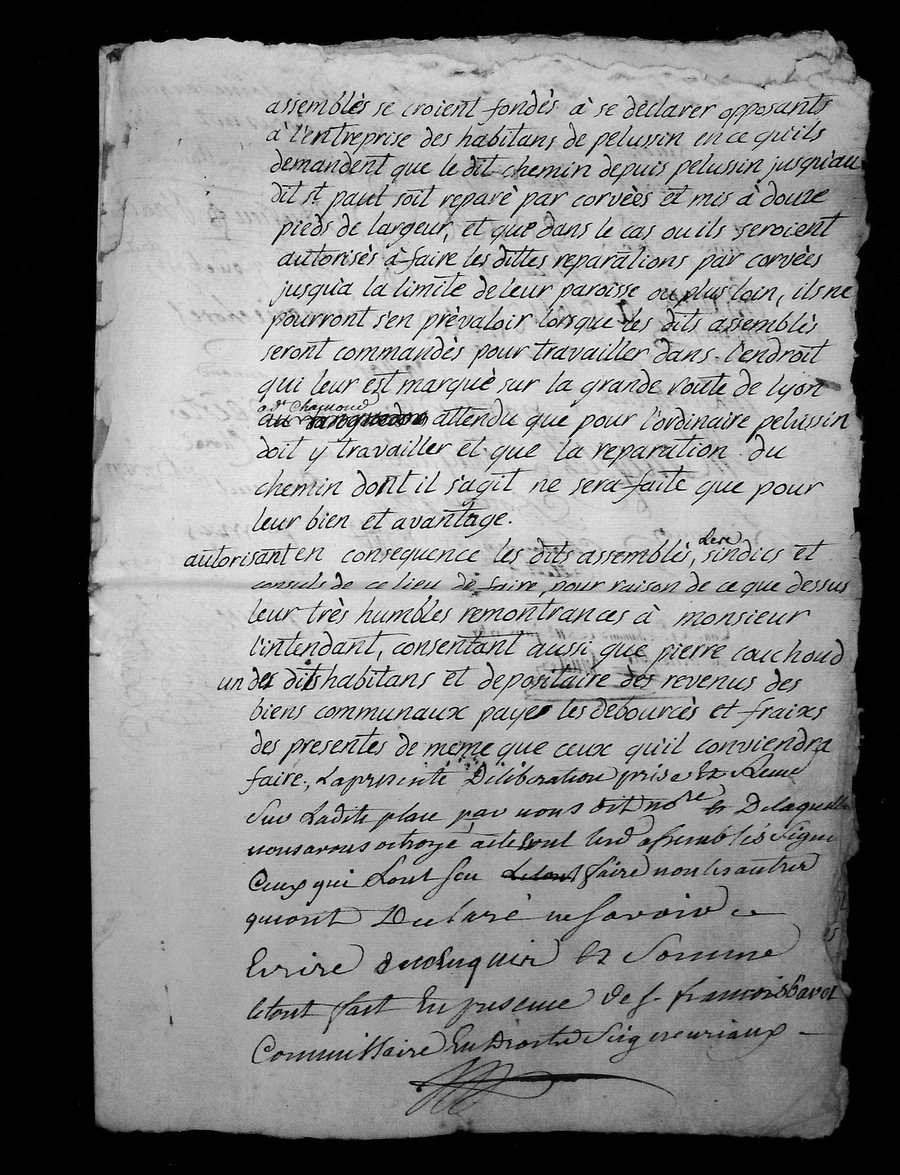 assemblés se croient fondés à se déclarer opposants
à l'entreprise des habitans de pelussin en ce qu'ils
demandent que le dit chemin depuis pelussin jusqu'au
dit st paul soit reparé par corvées et mis à douze
pieds de largeur, et que dans le cas ou ils seroient
autorisés à faire les dittes reparations par corvées
jusqu'a la limite de leur paroisse ou plus loin, ils ne
pourront s'en prévaloir lorsque les dits assemblés
seront commandés pour travailler dans l'endroit
qui leur est marqué sur la grande route de lyon
a st Chamond
attendu que pour l'ordinaire pelussin
doit y travailler et que la reparation du
chemin dont il s'agit ne sera faite que pour
leur bien et avantage.
autorisant en consequence les dits assemblés, sindics et
consuls de ce lieu de faire, pour raison de ce que dessus
leur très humbles remontrances à monsieur
l'intendant, consentant aussi que pierre couchoud
un des dits habitans et depositaire des revenus des
biens communaux paye les débourcés et fraixs
des presentes de meme que ceux qu'il conviendra
faire., La presente Déliberation prise Et
Sur Ladite place par nous dit nore Et De laquelle
nous avons octroyé acte assemblés Signé
Ceux qui L'ont sçu faire non les autres
qui ont Declaré ne Savoir
Ecrire de ce Enquis Et Sommé
le tout fait En presence de s. francois
Commissaire En Droits Seigneuriaux